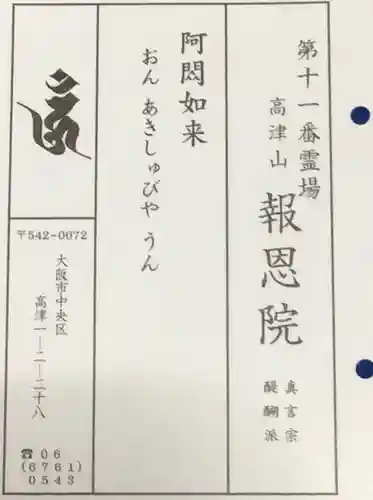 第十一番霊場
高津山
報恩院
真言宗
醍醐派
阿閦如来
おん あきしゅびや うん
〒542-0072
大阪市中央区
高津一―二―二十八
☎06
(6761)
0543